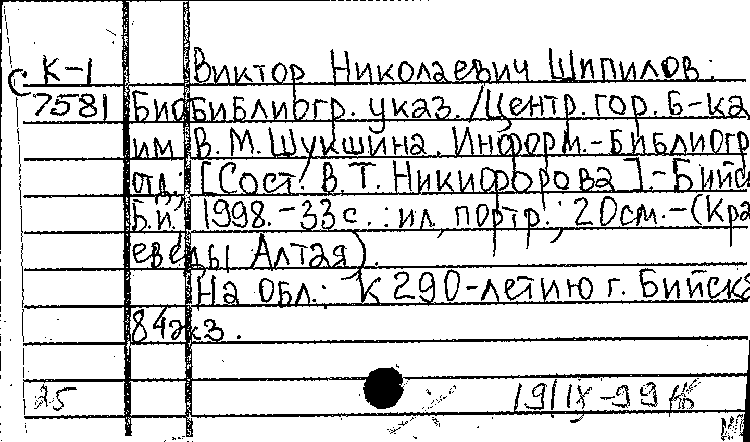 С К-1 Виктор Николаевич Шипилов:
7581 Биобиблиогр. указ. /Центр. гор. б-ка
им В. М. Шукшина. Информ.-Библиогр
отд.; [Сост. В. Т. Никифорова].-Бийс
Б.и., 1998.-33с.: ил, портр.; 20см.-(Кра
еведы Алтая).
На обл.: К 290-летию г. Бийска
84экз.
25 19/IX-99